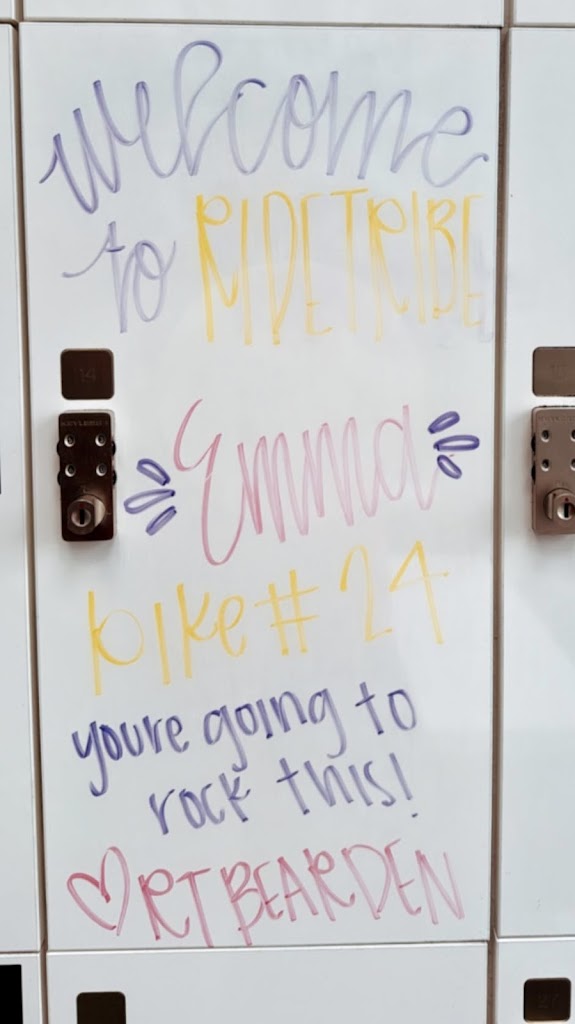 welcome
to RIDETRIBE
14
Emma
bike #24
you're going to
rock this!
♡ RT BEARDEN
27